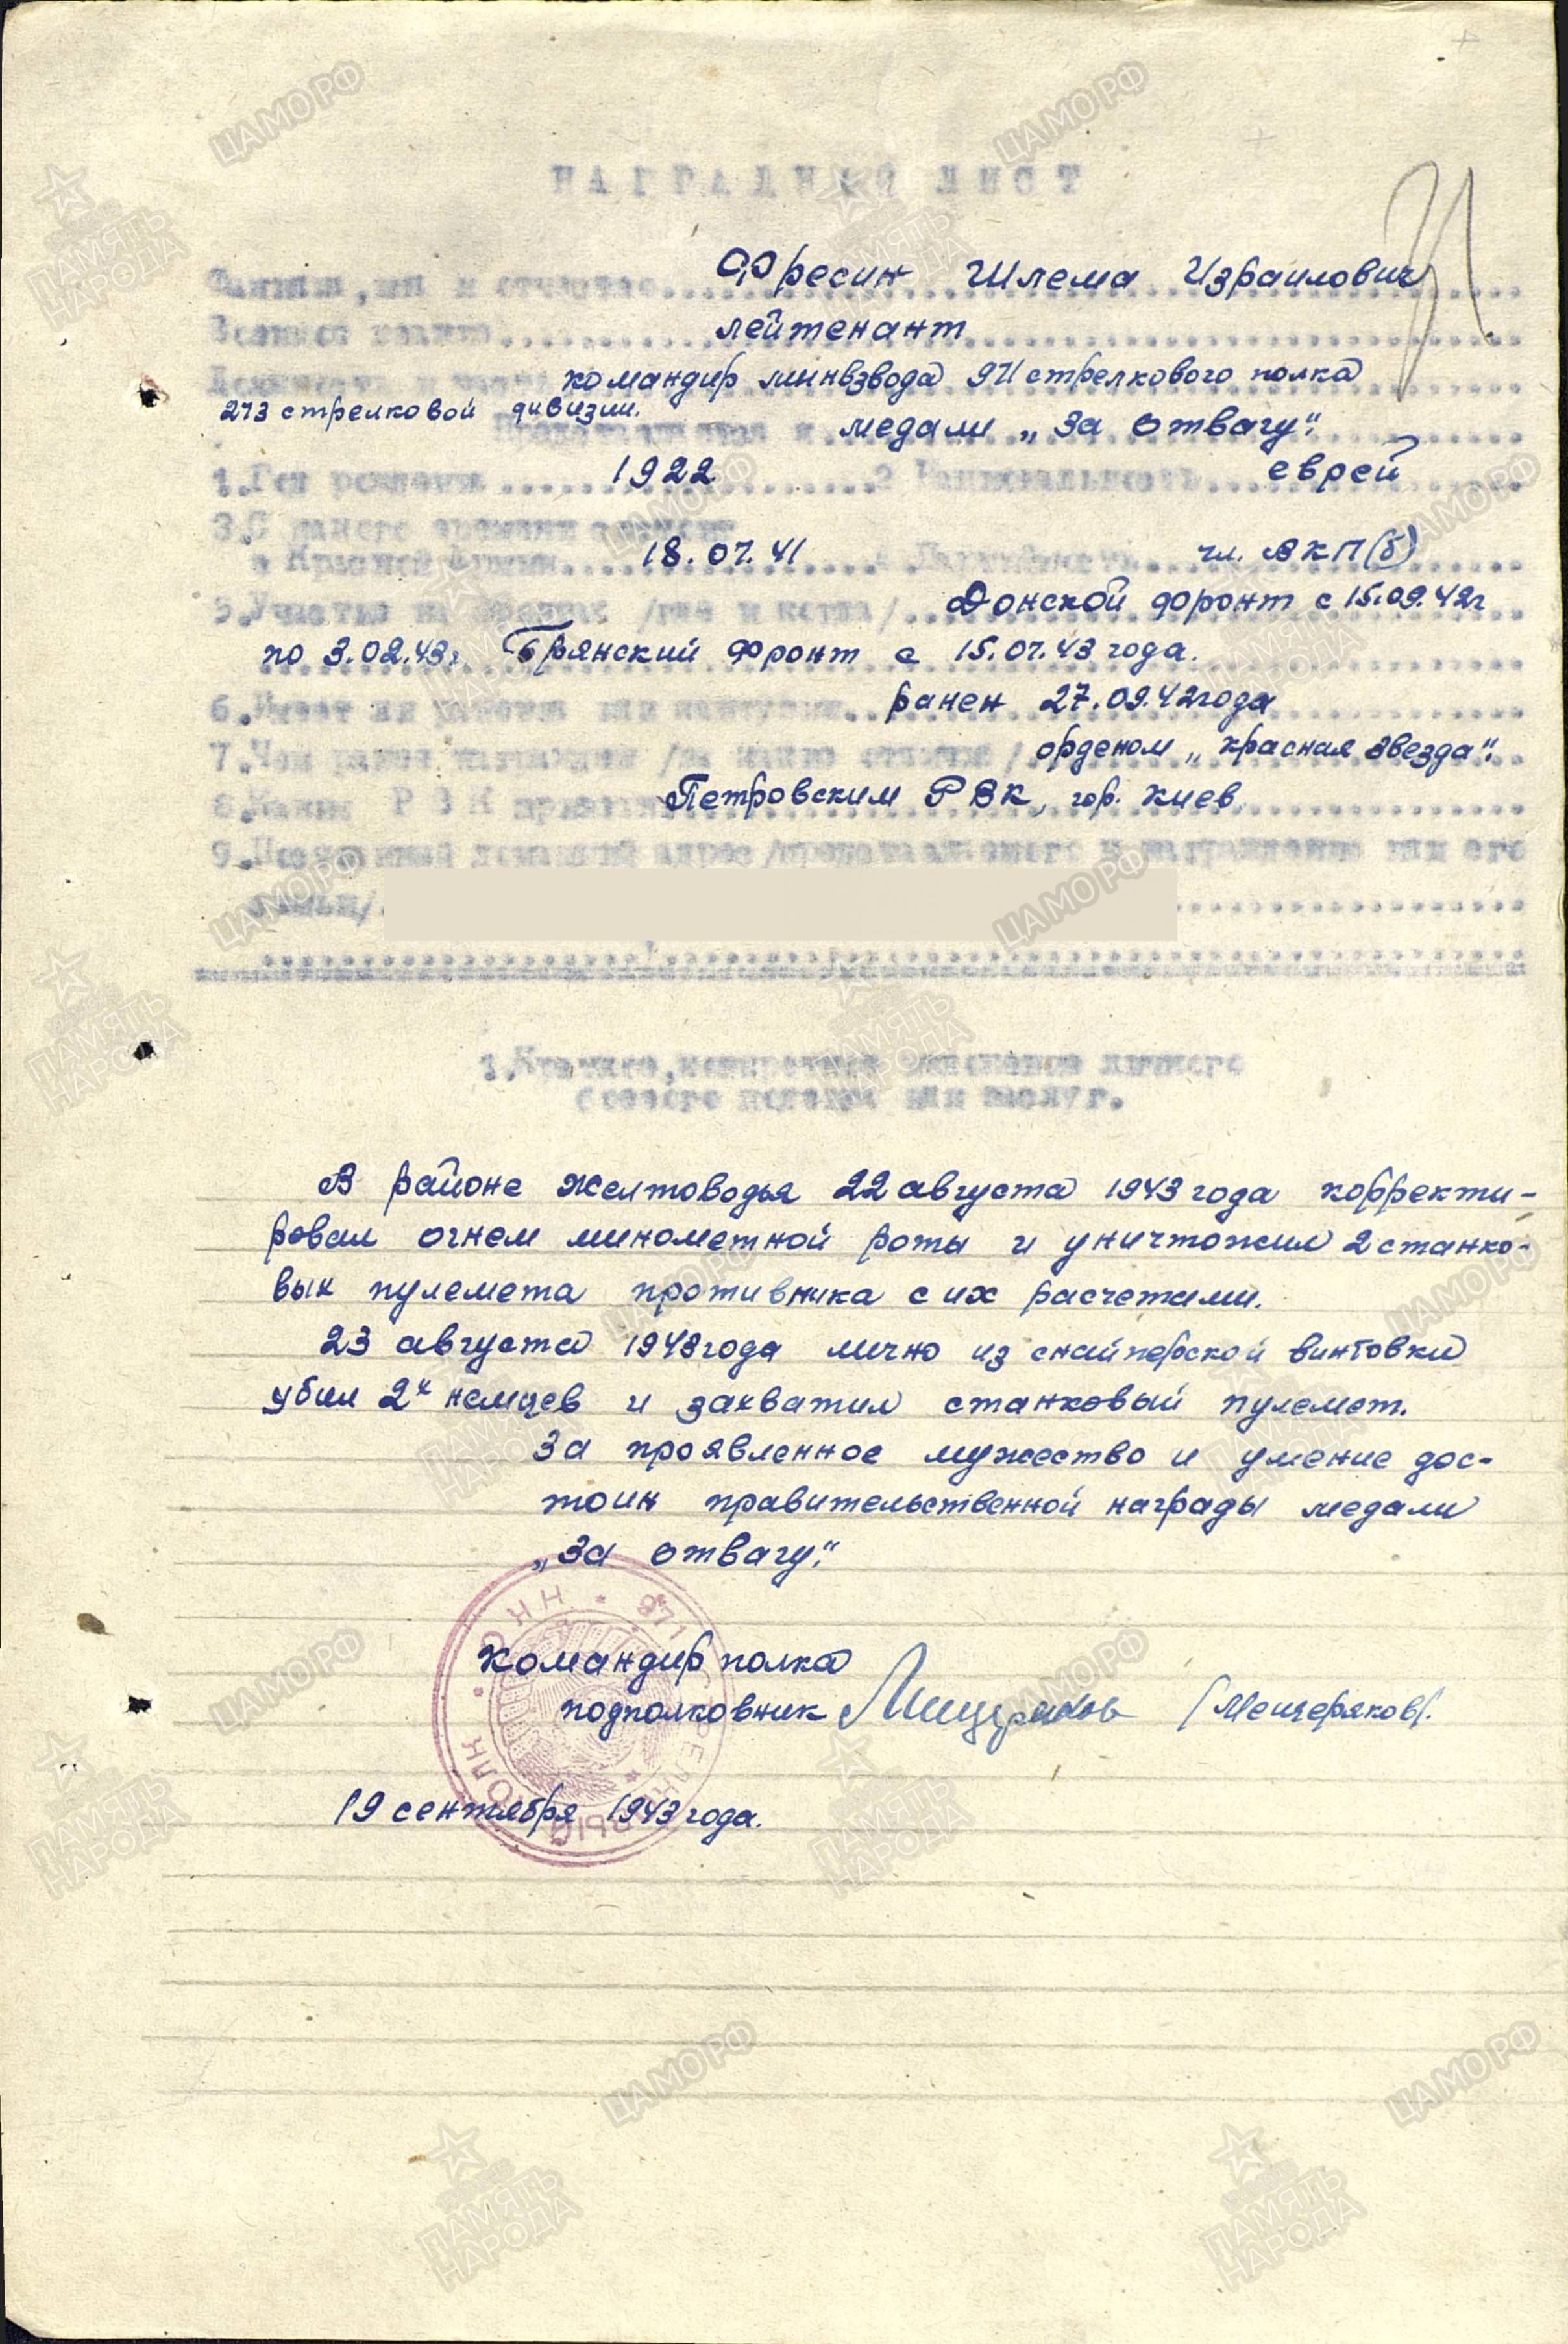 НАГРАДНОЙ ЛИСТ
Фамилия, имя и отчество Фресин Шлема Израилович
Военное звание лейтенант
Должность и часть командир минвзвода 971 стрелкового полка
273 стрелковой дивизии.
Представляется к медали „За отвагу".
1. Год рождения 1922 2 Национальность еврей
3. С какого времени состоит
в Красной Армии 18.07.41 4 Партийность чл. ВКП(б)
5. Участие в /где и когда/ Донской фронт с 15.09.42г
по 3.02.43г Брянский фронт с 15.07.43 года.
6. Имеет ли ранения или контузии ранен 27.09.42 года
7. Чем ранее награжден /за какие отличия/ орденом „Красная звезда".
8. Каким РВК призван Петровским РВК, гор. Киев
9. Постоянный домашний адрес /представляемого к награждению или его
семьи/
1. Краткое, конкретное изложение личного
боевого подвига или заслуг.
В районе Желтоводья 22 августа 1943 года корректи-
ровал огнем минометной роты и уничтожил 2 станко-
вых пулемета противника с их расчетами.
23 августа 1943 года лично из снайперской винтовки
убил 2х немцев и захватил станковый пулемет.
За проявленное мужество и умение дос-
тоин правительственной награды медали
„За отвагу".
971 СТРЕЛКОВЫЙ ПОЛК
Командир полка
подполковник Мещеряков /Мещеряков/.
19 сентября 1943 года.
ЦАМО РФ
ПАМЯТЬ НАРОДА